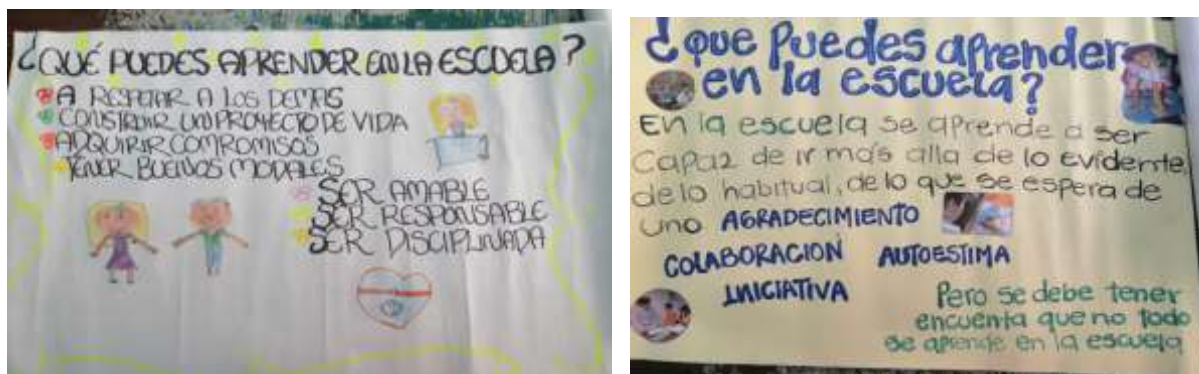 ¿QUÉ PUEDES APRENDER EN LA ESCUELA?
A RESPETAR A LOS DEMAS
CONSTRUIR UN PROYECTO DE VIDA
ADQUIRIR COMPROMISOS
TENER BUENOS MODALES
SER AMABLE
SER RESPONSABLE
SER DISCIPLINADA
¿que Puedes aprender
en la escuela?
En la escuela se aprende a ser
Capaz de ir más alla de lo evidente,
de lo habitual, de lo que se espera de
uno AGRADECIMIENTO
COLABORACIÓN AUTOESTIMA
INICIATIVA
Pero se debe tener
encuenta que no todo
se aprende en la escuela